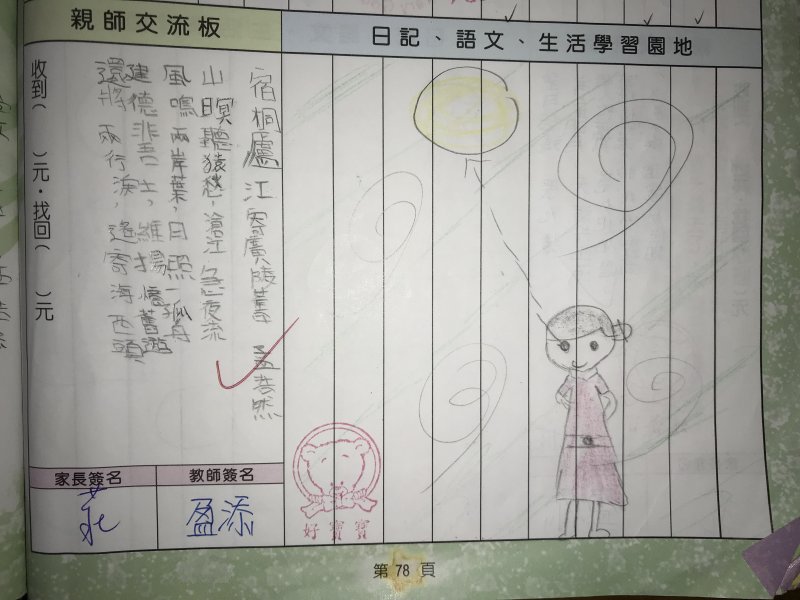 親師交流板
日記、語文、生活學習園地
宿桐廬江寄廣陵舊 孟浩然
山暝聽猿愁,滄江急夜流
風鳴兩岸葉,月照一孤舟
建德非吾土,維揚憶舊遊
還將兩行淚,遙寄海西頭
收到( )元·找回( )元
家長簽名
教師簽名
莊
盈添
好寶寶
第 78 頁